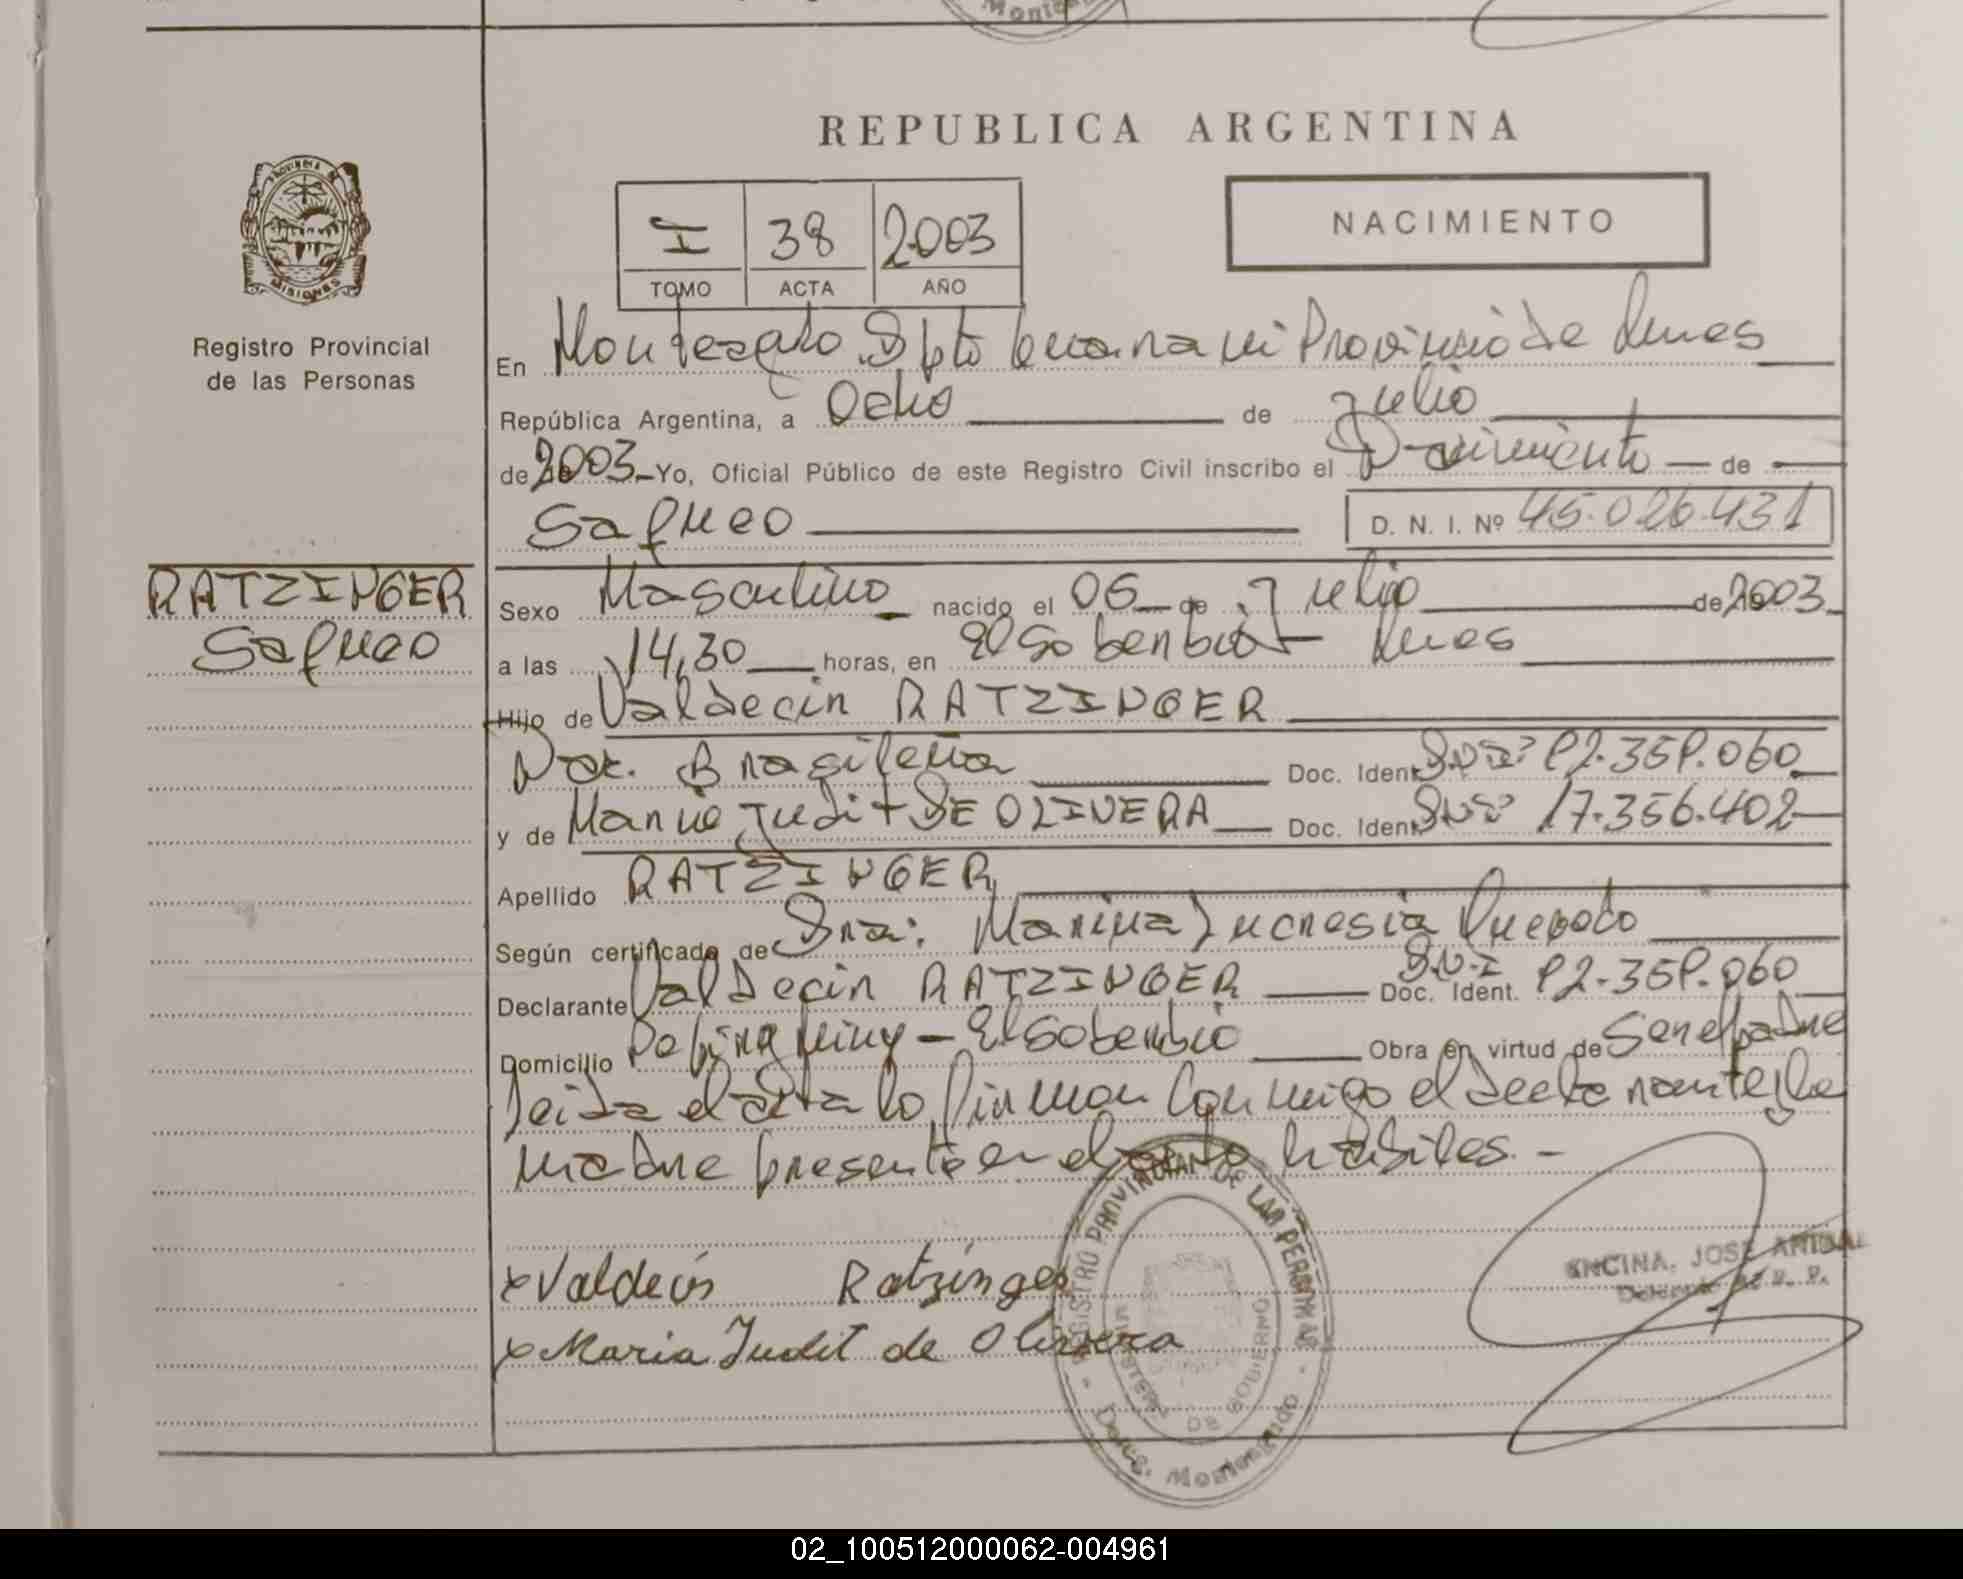 REPUBLICA ARGENTINA
PROVINCIA DE
MISIONES
Registro Provincial
de las Personas
I 38 2003
TOMO ACTA AÑO
NACIMIENTO
En Monteagudo Dpto Guarani Provincia de Mnes
República Argentina, a Ocho de Julio
de 2003 Yo, Oficial Público de este Registro Civil inscribo el Nacimiento de
D. N. I. Nº 45.026.431
RATZINGER
Sexo Masculino nacido el 06 de Julio de 2003
a las 14,30 horas, en El Soberbio - Mnes
Hijo de Valdecir RATZINGER
Nac. Brasileña Doc. Ident. D.N.I: 92.359.060
y de Maria Judit DE OLIVERA Doc. Ident. D.N.I: 17.356.402
Apellido RATZINGER
Según certificado de Dra: Marina Lucresia Quevedo
Declarante Valdecir RATZINGER Doc. Ident. D.N.I 92.359.060
Domicilio Miny - El Soberbio Obra en virtud de Ser el padre
Leida el Acta lo firman Conmigo el declarante y la
madre presente en el acto habiles. -
x Valdecir Ratzinger
x Maria Judit de Olivera
REGISTRO PROVINCIAL DE LAS PERSONAS
MINISTERIO DE GOBIERNO
Deleg. Monteagudo
ENCINA, JOSE ANIBAL
02_100512000062-004961